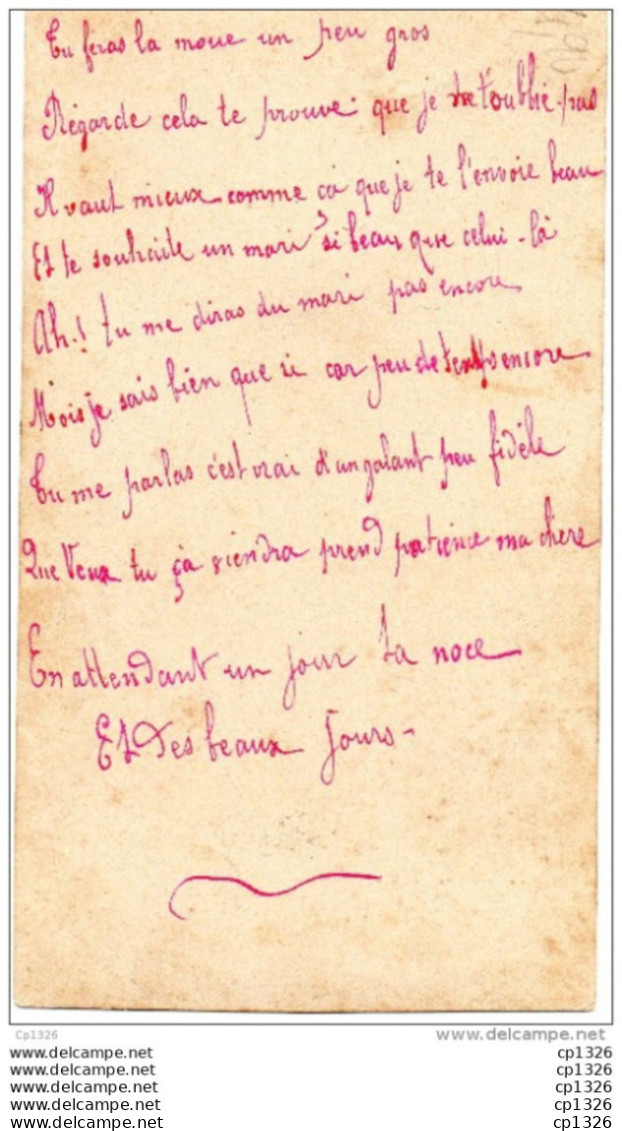 Tu feras la moue un peu gros
Régarde cela te prouve que je ne t'oublie pas
Il vaut mieux comme ça que je te l'envoie beau
Et te souhaite un mari si beau que celui-là
Ah! tu me diras du mari pas encore
Mois je sais bien que si car peu de temps encore
Tu me parlas c'est vrai d'un galant peu fidèle
Que Veux tu ça viendra prend patience ma chère
En attendant un jour ta noce
Et Des beaux Jours-
Cp1326
delcampe.net
www.delcampe.net cp1326
www.delcampe.net cp1326
www.delcampe.net cp1326
www.delcampe.net cp1326
www.delcampe.net cp1326